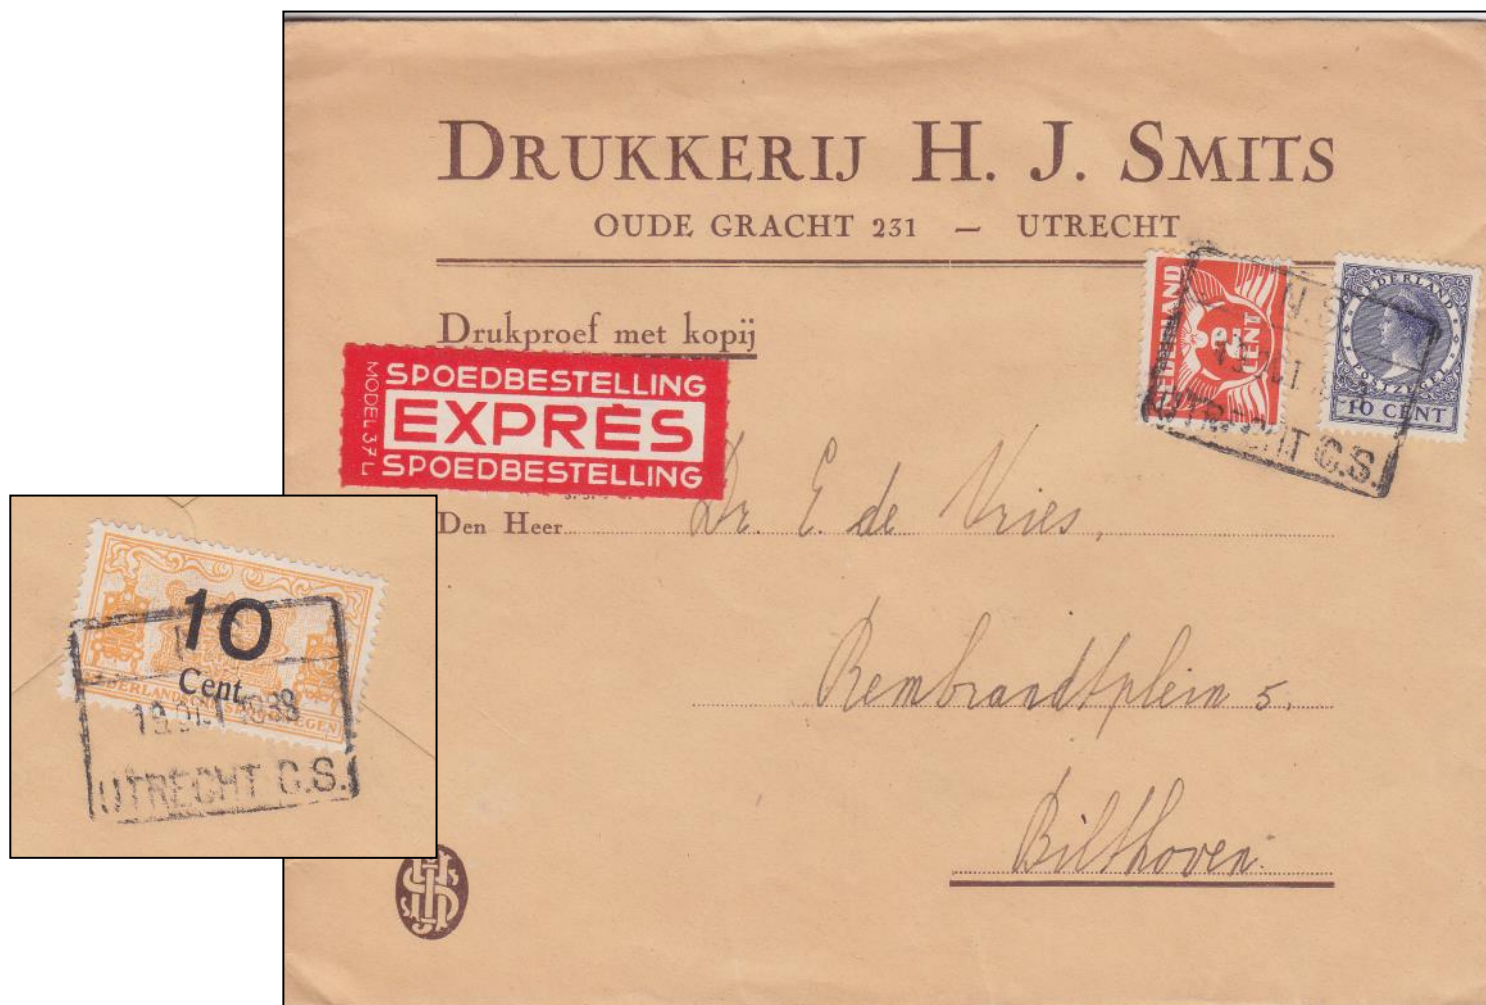 DRUKKERIJ H. J. SMITS
OUDE GRACHT 231 – UTRECHT
Drukproef met kopij
MODEL 37 L
SPOEDBESTELLING
EXPRÈS
SPOEDBESTELLING
NEDERLAND
CENT
NEDERLAND
POSTZEGEL
10 CENT
N.S.
UTRECHT C.S.
Den Heer Dr. E. de Vries,
Rembrandtplein 5.
Bilthoven.
10
Cent
NEDERLANDSCHE SPOORWEGEN
1938
UTRECHT C.S.